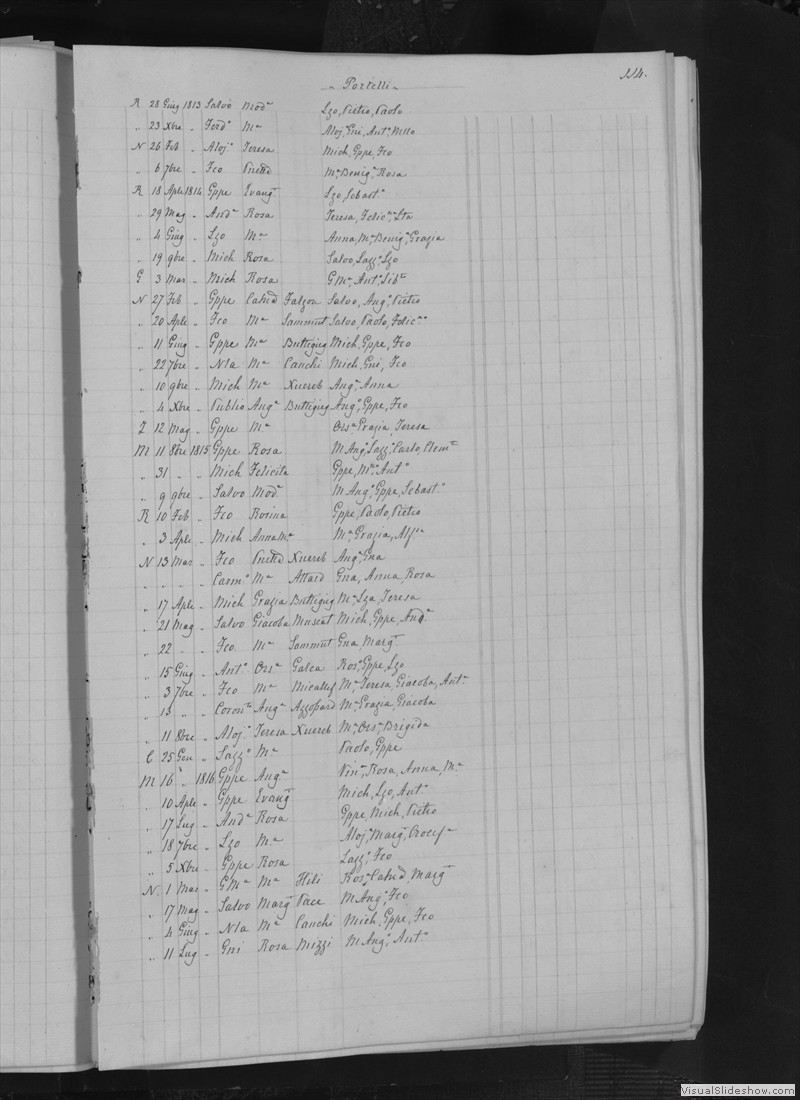 Portelli
114.
R 28 Giug 1813 Salvo Modª Lzo, Pietro, Paolo
„ 23 Xbre „ Ferdº Mª Alojº, Gni, Antº, Mllo
N 26 Feb „ Alojº Teresa Mich, Gppe, Fco
„ 6 7bre „ Fco Mª, Benigª, Rosa
R 18 Aple 1814 Gppe Evangtª Lzo, Sebastº
„ 29 Mag „ Andª Rosa Teresa, Felicª, Lta
„ 4 Giug „ Lzo Mª Anna, Mª, Benigª, Grazia
„ 19 9bre „ Mich Rosa Salvo, Lazzº, Lzo
G 3 Mar „ Mich Rosa GMª, Antº, Libª
N 27 Feb „ Gppe Catnd Falzon Salvo, Angº, Pietro
„ 20 Aple „ Fco Mª Sammut Salvo, Paolo, Felicnº
„ 11 Giug „ Gppe Mª Buttigieg Mich, Gppe, Fco
„ 22 7bre „ Nla Mª Cauchi Mich, Gni, Fco
„ 10 9bre „ Mich Mª Xuereb Angª, Anna
„ 4 Xbre „ Publio Angª Buttigieg Angº, Gppe, Fco
Z 12 Mag „ Gppe Mª Orsª, Grazia, Teresa
M 11 8bre 1815 Gppe Rosa M Angº, Lazzº, Carlo, Clemte
„ 31 „ „ Mich Felicita Gppe, Mnº, Antº
„ 9 9bre „ Salvo Modª M Angº, Gppe, Sebastº
R 10 Feb „ Fco Rosina Gppe, Paolo, Pietro
„ 3 Aple „ Mich Anna Mª Mª, Grazia, Alfsª
N 13 Mar „ Fco Xuereb Angª, Gna
„ „ „ „ Carmº Mª Attard Gna, Anna, Rosa
„ 17 Aple „ Mich Grazia Buttigieg Mª, Lza, Teresa
„ 21 Mag „ Salvo Giacoba Muscat Mich, Gppe, Andª
„ 22 „ „ Fco Mª Sammut Gna, Margtª
„ 15 Giug „ Antº Orsª Galea Rosº, Gppe, Lzo
„ 3 7bre „ Fco Mª Micallef Mª, Teresa, Giacoba, Antª
„ 13 „ „ Coronto Angª Azzopard Mª, Grazia, Giacoba
„ 11 8bre „ Alojº Teresa Xuereb Mª, Orsª, Brigida
C 25 Gen „ Lazzº Mª Paolo, Gppe
M 16 „ 1816 Gppe Angª Vinª, Rosa, Anna, Mª
„ 10 Aple „ Gppe Evangtª Mich, Lzo, Antº
„ 17 Lug „ Andª Rosa Gppe, Mich, Pietro
„ 18 7bre „ Lzo Mª Alojª, Margtª, Crocefª
„ 5 Xbre „ Gppe Rosa Lazzº, Fco
N 1 Mar „ GMª Mª Hili Rosª, Catnd, Margtª
„ 17 Mag „ Salvo Margtª Pace M Angº, Fco
„ 4 Giug „ Nla Mª Cauchi Mich, Gppe, Fco
„ 11 Lug „ Gni Rosa Mizzi M Angº, Antº
VisualSlideshow.com